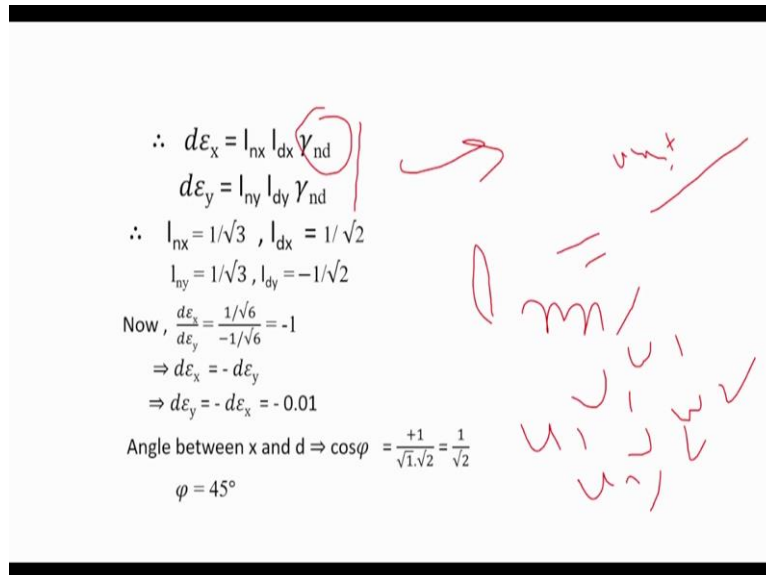 ∴ dεₓ = lₙₓ l_dx γ_nd
dε_y = l_ny l_dy γ_nd
∴ lₙₓ = 1/√3 , l_dx = 1/√2
l_ny = 1/√3 , l_dy = −1/√2
Now , dεₓ/dε_y = (1/√6)/(−1/√6) = -1
⇒ dεₓ = - dε_y
⇒ dε_y = - dεₓ = - 0.01
Angle between x and d ⇒ cosφ = +1/(√1.√2) = 1/√2
φ = 45°